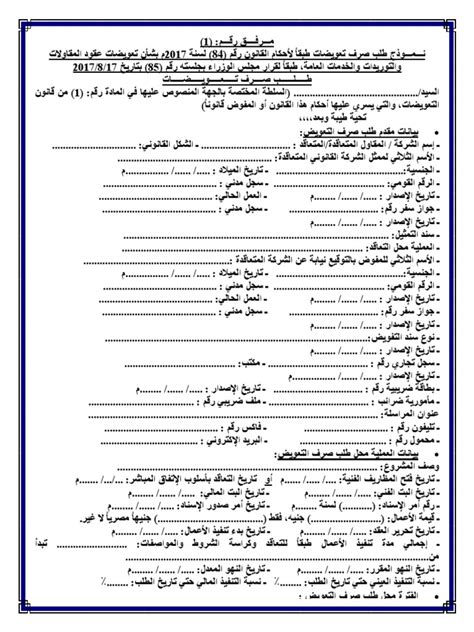 مـرفـــق رقــم: (1)
نـمـــوذج طلب صرف تعويضات طبقاً لأحكام القانون رقم (84) لسنة 2017م بشأن تعويضات عقود المقاولات
والتوريدات والخدمات العامة، طبقاً لقرار مجلس الوزراء بجلسته رقم (85) بتاريخ 2017/8/17
طـــلـــب صـــرف تـــعـــويـــضـــات
السيد/............................ (السلطة المختصة بالجهة المنصوص عليها في المادة رقم: (1) من قانون
التعويضات، والتي يسري عليها أحكام هذا القانون أو المفوض قانوناً)
تحية طيبة وبعد،،،،
- بيانات مقدم طلب صرف التعويض:
- إسم الشركة / المقاول المتعاقد/المتعاقدة: ............................ - الشكل القانوني: ....................
- الأسم الثلاثي لممثل الشركة القانوني المتعاقدة: ........................................
- الجنسية: ............................ - تاريخ الميلاد : ...../ ....../ ........م
- الرقم القومي: ............................ - سجل مدني : ............................
- تاريخ الإصدار : ...../ ....../ ........م - العمل الحالي: ............................
- جواز سفر رقم : ............................ - تاريخ الإصدار : ...../ ....../ ........م
- سند التمثيل: ........................................
- العملية محل التعاقد: ........................................
- الأسم الثلاثي للمفوض بالتوقيع نيابة عن الشركة المتعاقدة: ............................
- الجنسية: ............................ - تاريخ الميلاد : ...../ ....../ ........م
- الرقم القومي: ............................ - سجل مدني : ............................
- تاريخ الإصدار : ...../ ....../ ........م - العمل الحالي: ............................
- جواز سفر رقم : ............................ - تاريخ الإصدار : ...../ ....../ ........م
- نوع سند التفويض: ........................................
- تاريخ الإصدار : ...../ ....../ ........م
- سجل تجاري رقم : ............................ - مكتب: ............................
- تاريخ الإصدار: ...../ ....../ ........م
- بطاقة ضريبية رقم : ............................ - تاريخ الإصدار: ...../ ....../ ........م
- مأمورية ضرائب : ............................ - ملف ضريبي رقم : ............................
عنوان المراسلة: ........................................
- تليفون رقم : ............................ - فاكس رقم : ............................
- محمول رقم : ............................ - البريد الإلكتروني : ............................
- بيانات العملية محل طلب صرف التعويض:
وصف المشروع: ........................................
- تاريخ فتح المظاريف الفنية: ..../ ..../ ......م أو تاريخ التعاقد بأسلوب الإتفاق المباشر: ..../..../......م
- تاريخ البت الفني: ..../ ..../ ......م - تاريخ البت المالي : ..../ ..../ ......م
- رقم أمر الإسناد: (............) لسنة ........م - تاريخ أمر صدور الإسناد: ..../ ..../ ......م
- قيمة الأعمال: (............) جنيه، فقط (............................) جنيهاً مصرياً لا غير.
- تاريخ تحرير العقد: ..../ ..../ ......م - تاريخ بدء تنفيذ الأعمال: ..../ ..../ ......م
- إجمالي مدة تنفيذ الأعمال طبقاً للتعاقد وكراسة الشروط والمواصفات: ................ تبدأ
من........................................
- تاريخ النهو المقرر: ..../ ..../ ......م - تاريخ النهو المعدل: ..../ ..../ ......م
- نسبة التنفيذ العيني حتي تاريخ الطلب: ........٪ - نسبة التنفيذ المالي حتي تاريخ الطلب: ........٪
- الفترة محل طلب صرف التعويض :